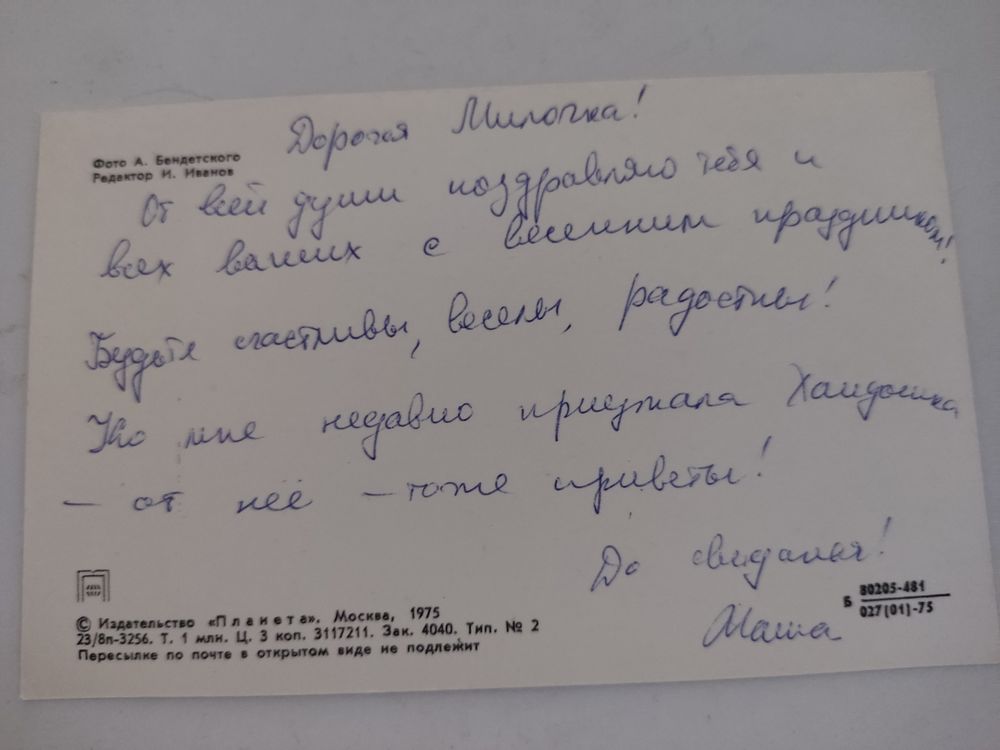 Дорогая Милочка!
Фото А. Бендетского
Редактор И. Иванов
От всей души поздравляю тебя и
всех ваших с весенним праздником!
Будьте счастливы, веселы, радостны!
Ко мне недавно приезжала
— от неё — тоже приветы!
До свиданья!
Маша
© Издательство «Планета». Москва, 1975
23/8п-3256. Т. 1 млн. Ц. 3 коп. 3117211. Зак. 4040. Тип. № 2
Пересылке по почте в открытом виде не подлежит
Б 80205-481
027(01)-75